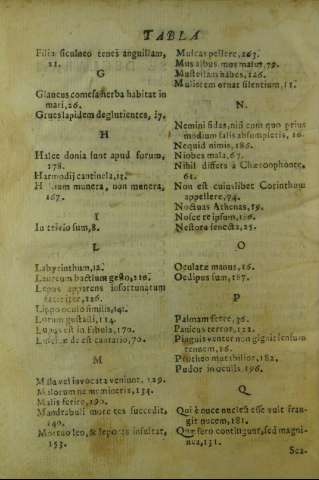 TABLA
Filia siculneo tenes anguillam,
21.
G
Glaucus comesa herba habitat in
mari, 26.
Grues lapidem deglutientes, 17.
H
Halec donia sunt apud forum,
178.
Harmodij cantinela, 15.
munera, non munera,
167.
I
In sum, 8.
L
Labyrinthum, 12.
Laureum bactium gesto, 216.
Lepus apparens infortunatum
iter, 126.
Lippo oculo similis, 141.
Lorum gustasti, 114.
Lupus est in fabula, 170.
de est cantario, 70.
M
Mala vel invocata veniunt, 129.
Malorum ne memineris, 134.
Malis ferire, 190.
Mandrabuli more res succedit,
140.
Mortuo leo, & lepores insultat,
153.
Mulcas pellere, 267.
Mus albus, mos malus, 79.
Mustellam habes, 126.
Mulierem ornat silentium, 11.
N.
Nemini fidas, nisi cum quo prius
modium salis absumpseris, 16.
Nequid nimis, 186.
Niobes mala, 67.
Nihil differs à Chæreophonte,
61.
Non est cuiuslibet Corinthum
appellere, 74.
Noctuas Athenas, 19.
Nosce te ipsum, 186.
Nestora senecta, 25.
O
Oculatæ manus, 16.
Oedipus sum, 187.
P
Palmam ferre, 36.
Panicus terror, 122.
Pinguis venter non gignit sensum
tenuem, 16.
mutabilior, 182.
Pudor in oculis, 196.
Q
Qui è nuce nucleū esse vult fran-
git nucem, 181.
Quæ fero contingunt, sed magni-
nea, 131.
Sca.